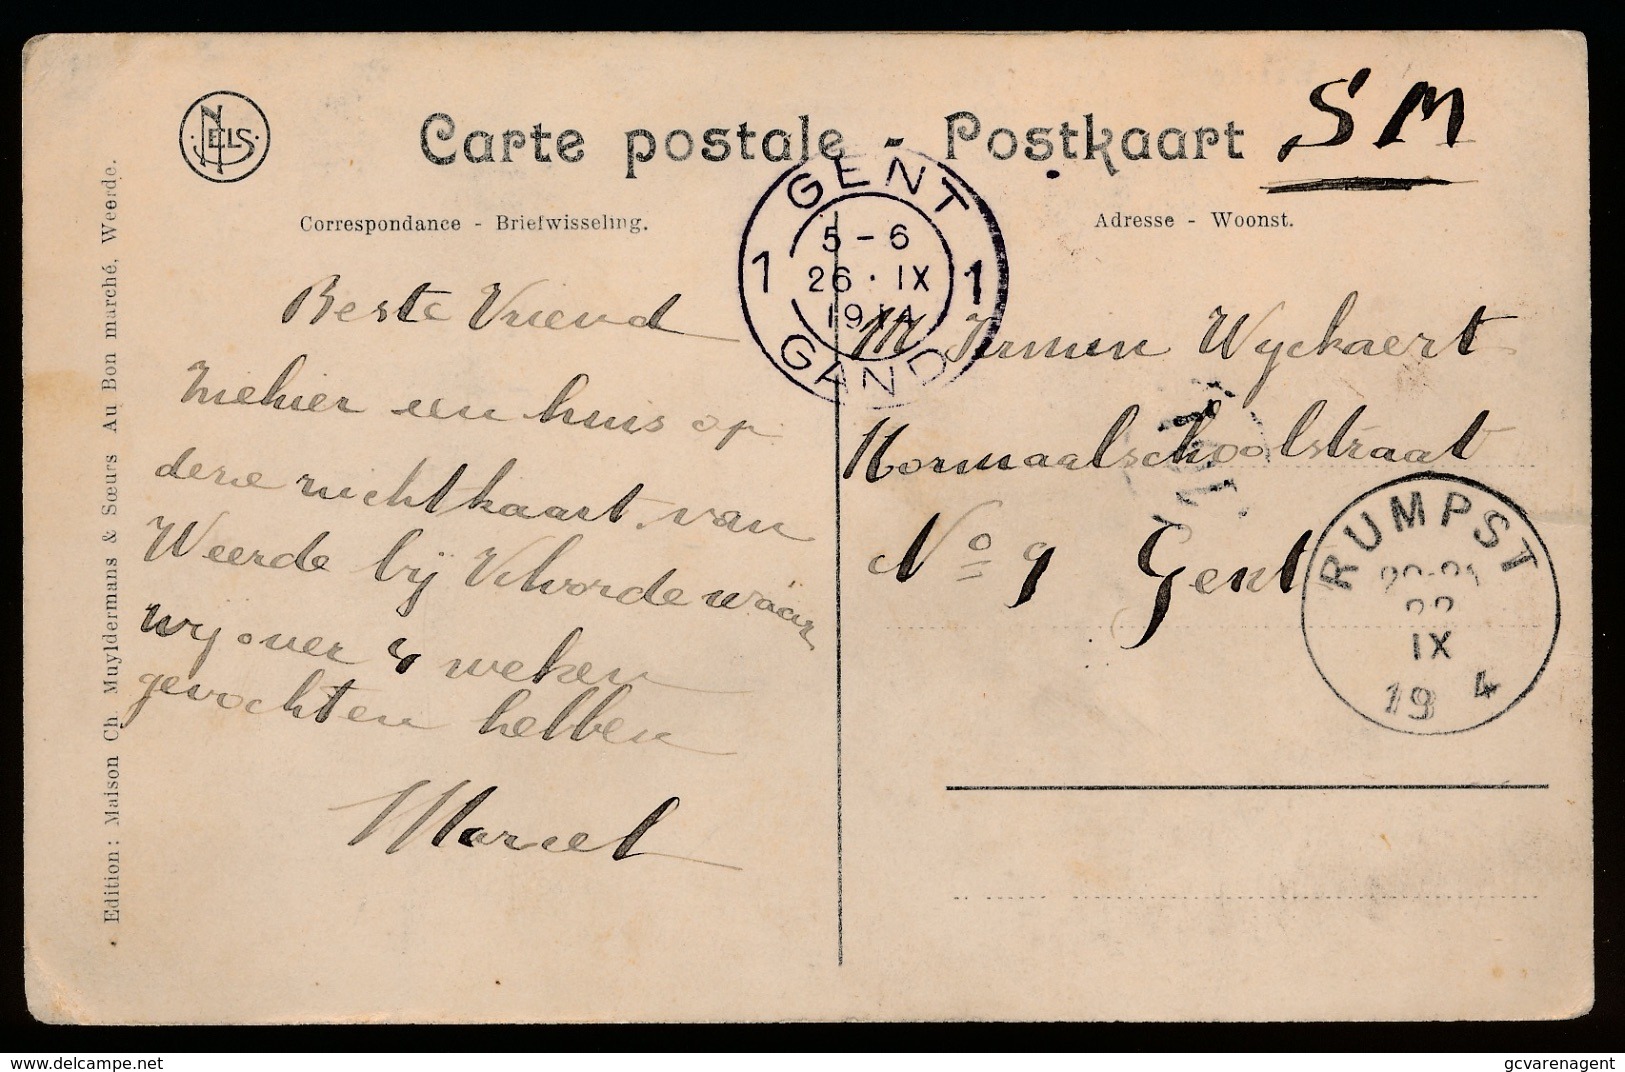 NELS
Carte postale - Postkaart
SM
Correspondance - Briefwisseling.
Adresse - Woonst.
GENT
5 - 6
1 26 · IX 1
1914
GAND
Beste Vriend
Ziehier een huis op
deze zichtkaart van
Weerde bij Vilvorde waar
wy over 4 weken
gevochten hebben
Marcel
M Firmin Wyckaert
Normaalschoolstraat
No 9 Gent
RUMPST
IX
19 4
Edition: Maison Ch. Muyldermans & Sœurs Au Bon marché, Weerde.
https://www.delcampe.net
gcvarenagent